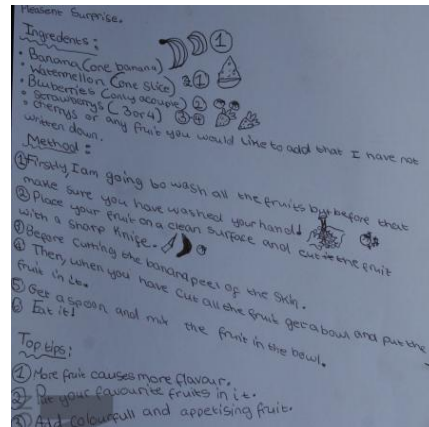 Pleasent Surprise.
Ingredents:
• Banana (one banana) ①
• Watermellon (one slice) ①
• Bluberries (only a couple) ②
• Strawberrys (3 or 4) ③-④
• Cherrys or any fruit you would like to add that I have not
written down.
Method:
① Firstly, I am going to wash all the fruits but before that
make sure you have washed your hands!
② Place your fruit on a clean surface and cut the fruit
with a sharp knife.
③ Before cutting the banana peel of the skin.
④ Then, when you have cut all the fruit get a bowl and put the
fruit in it.
⑤ Get a spoon and mix the fruit in the bowl.
⑥ Eat it!
Top tips:
① More fruit causes more flavour.
② Put your favourite fruits in it.
③ Add colourfull and appetising fruit.